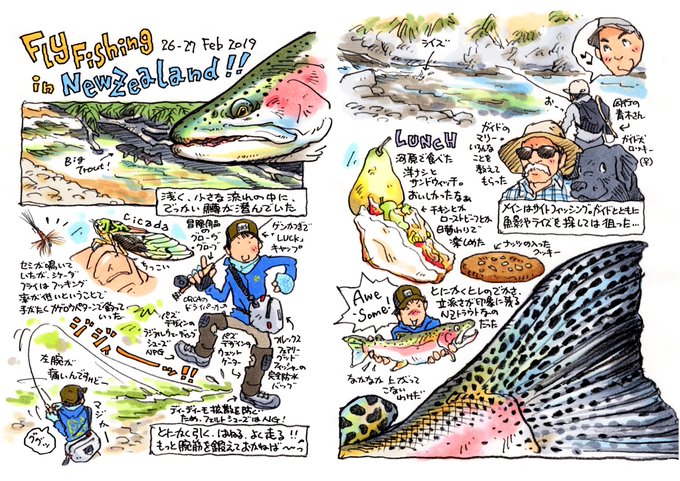 Fly Fishing
in NewZealand!!
26-27 Feb 2019
Big
Trout!
浅く、小さな流れの中に、
でっかい鱒が潜んでいた。
Cicada
ちっこい
セミが鳴いて
いたが、シケーダ
フライはフッキング
率が低いということで
手がたくカゲロウパターンで釣って
いった。
冒険用品
の
フローティング
ゲンかつぎで
"LUCK"
キャップ
ORCAの
ドライパーカー
パズ
デザインの
ラジアルウェーディング
シューズ
NPG
パズ
デザインの
ウェット
ゲーター
フルックス
ファミリー
ランド
フィッシュの
完全防水
バッグ
ディディーモ拡散を防ぐ
ため、フェルトシューズはNG!
ジジャーーッ!!
左腕が
痛いんですけどー
ググッ
とにかく引く、はねる、よく走る!!
もっと腕筋を鍛えておかねば〜っ
ライズ
お。
同行の
青木さん
ガイド犬
ロッキー
(♀)
ガイドの
マリー。
いろんな
ことを
教えて
もらった
メインはサイトフィッシング。ガイドとともに
魚影やライズを探しては狙った…
LUNCH
河原で食べた
洋ナシと
サンドウィッチ。
おいしかったなぁ
チキンとか
ローストビーフとか
日替わりで
楽しめた
ナッツの入った
クッキー
Awe
-Some!
とにかくヒレのでかさ、
立派さが印象に残る
NZトラウトなの
だった
なかなか上がって
こないわけだ